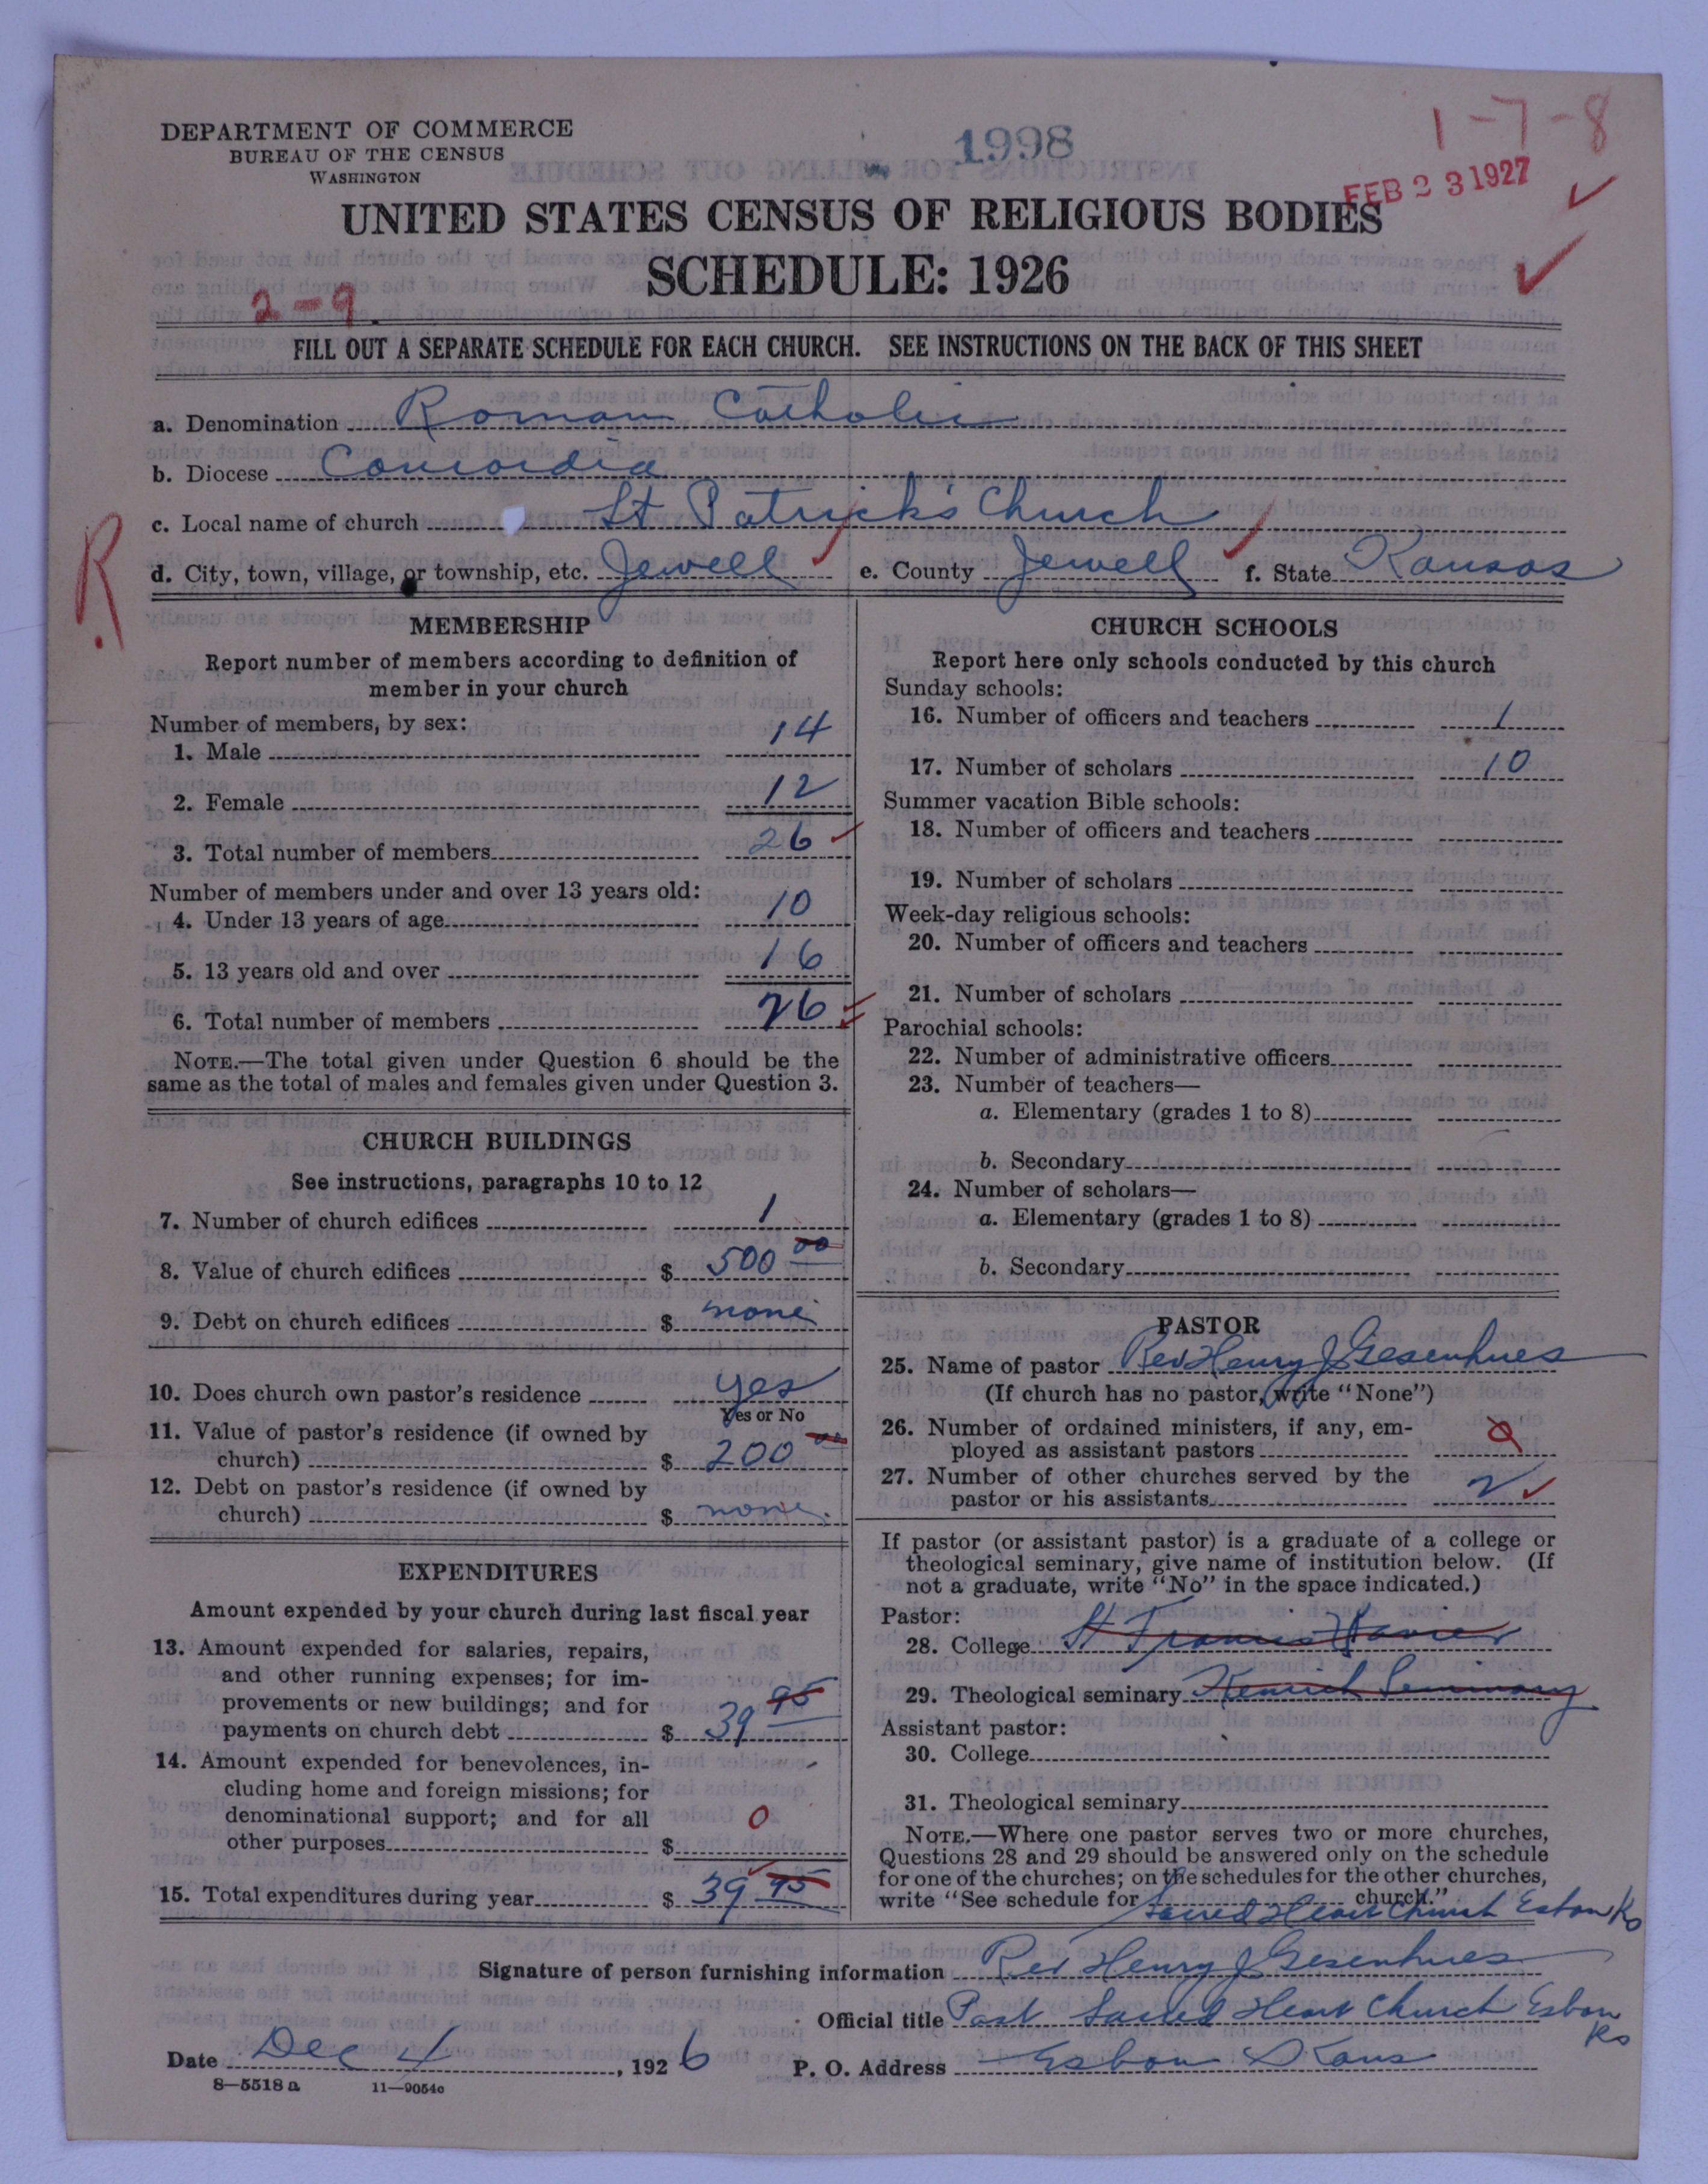 DEPARTMENT OF COMMERCE
BUREAU OF THE CENSUS
WASHINGTON
1998
1-7-8
FEB 23 1927
UNITED STATES CENSUS OF RELIGIOUS BODIES
SCHEDULE: 1926
2-9
FILL OUT A SEPARATE SCHEDULE FOR EACH CHURCH. SEE INSTRUCTIONS ON THE BACK OF THIS SHEET
a. Denomination Roman Catholic
b. Diocese Concordia
c. Local name of church St Patrick's Church
R
d. City, town, village, or township, etc. Jewell e. County Jewell f. State Kansas
MEMBERSHIP
Report number of members according to definition of
member in your church
Number of members, by sex:
1. Male 14
2. Female 12
3. Total number of members 26
Number of members under and over 13 years old:
4. Under 13 years of age 10
5. 13 years old and over 16
6. Total number of members 26
NOTE.—The total given under Question 6 should be the
same as the total of males and females given under Question 3.
CHURCH BUILDINGS
See instructions, paragraphs 10 to 12
7. Number of church edifices 1
8. Value of church edifices $ 500 00
9. Debt on church edifices $ none
10. Does church own pastor's residence yes
Yes or No
11. Value of pastor's residence (if owned by
church) $ 200 00
12. Debt on pastor's residence (if owned by
church) $ none
EXPENDITURES
Amount expended by your church during last fiscal year
13. Amount expended for salaries, repairs,
and other running expenses; for im-
provements or new buildings; and for
payments on church debt $ 39 95
14. Amount expended for benevolences, in-
cluding home and foreign missions; for
denominational support; and for all
other purposes $ 0
15. Total expenditures during year $ 39 95
CHURCH SCHOOLS
Report here only schools conducted by this church
Sunday schools:
16. Number of officers and teachers 1
17. Number of scholars 10
Summer vacation Bible schools:
18. Number of officers and teachers
19. Number of scholars
Week-day religious schools:
20. Number of officers and teachers
21. Number of scholars
Parochial schools:
22. Number of administrative officers
23. Number of teachers—
a. Elementary (grades 1 to 8)
b. Secondary
24. Number of scholars—
a. Elementary (grades 1 to 8)
b. Secondary
PASTOR
25. Name of pastor Rev Henry J Gesenhues
(If church has no pastor, write "None")
26. Number of ordained ministers, if any, em-
ployed as assistant pastors
27. Number of other churches served by the
pastor or his assistants 2
If pastor (or assistant pastor) is a graduate of a college or
theological seminary, give name of institution below. (If
not a graduate, write "No" in the space indicated.)
Pastor:
28. College St Francis Xavier
29. Theological seminary Kenrick Seminary
Assistant pastor:
30. College
31. Theological seminary
NOTE.—Where one pastor serves two or more churches,
Questions 28 and 29 should be answered only on the schedule
for one of the churches; on the schedules for the other churches,
write "See schedule for church."
Sacred Heart Church Esbon Ks
Signature of person furnishing information Rev Henry J Gesenhues
Official title Past Sacred Heart Church Esbon
Ks
Date Dec 4, 1926 P. O. Address Esbon Kans
8—5518 a 11—9054c